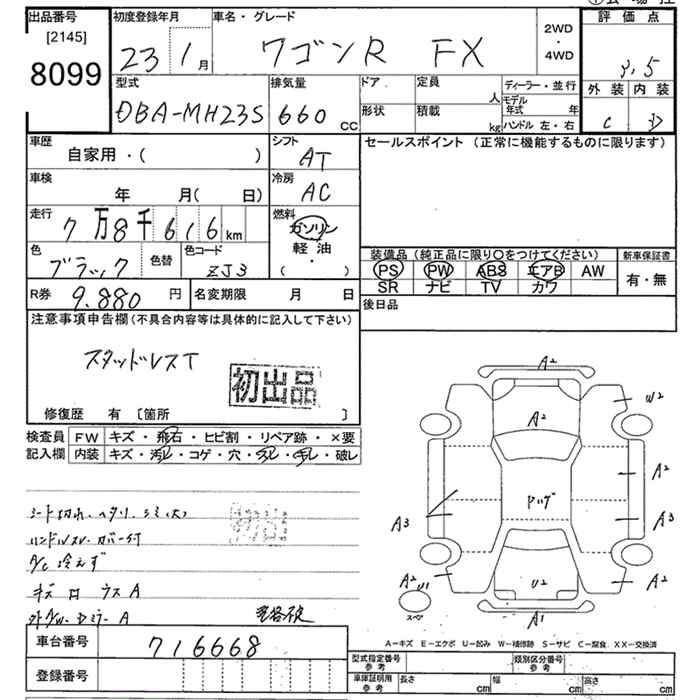 出品番号 初度登録年月 車名・グレード 評価点
[2145]
8099
23 1月 ワゴンR FX 2WD・4WD
3,5
型式 排気量 ドア 定員 人 ディーラー・並行 外装 内装
DBA-MH23S 660 cc 形状 積載 kg モデル年式 年 ハンドル 左・右 C D
車歴 シフト セールスポイント (正常に機能するものに限ります)
自家用・( ) AT
車検 冷房
年 月( 日) AC
走行 燃料
7万8千616km ガソリン
軽油
( ・ )
色 色替 色コード
ブラック ZJ3
装備品 (純正品に限り○をつけてください) 新車保証書
PS PW ABS エアB AW 有・無
SR ナビ TV カワ
R券 9.880 円 名変期限 月 日
後日品
注意事項申告欄(不具合内容等は具体的に記入して下さい)
スタッドレスT
初出品
修復歴 有 [箇所 ]
検査員 FW キズ・飛石・ヒビ割・リペア跡・×要
記入欄 内装 キズ・汚レ・コゲ・穴・スレ・チレ・破レ
シート切れ、ヘタリ、シミ(大)
ハンドルスレ・カバー付
A/C 冷えず
A2
A2
W2
A2
A3
A3
A2
U1
U2
A2
A1
スペア
A-キズ E-エクボ U-凹み W-補修跡 S-サビ C-腐食 XX-交換済
車台番号 716668
登録番号
型式指定番号 参考 類別区分番号 参考
車庫証明用 参考 長さ cm 幅 cm 高さ cm